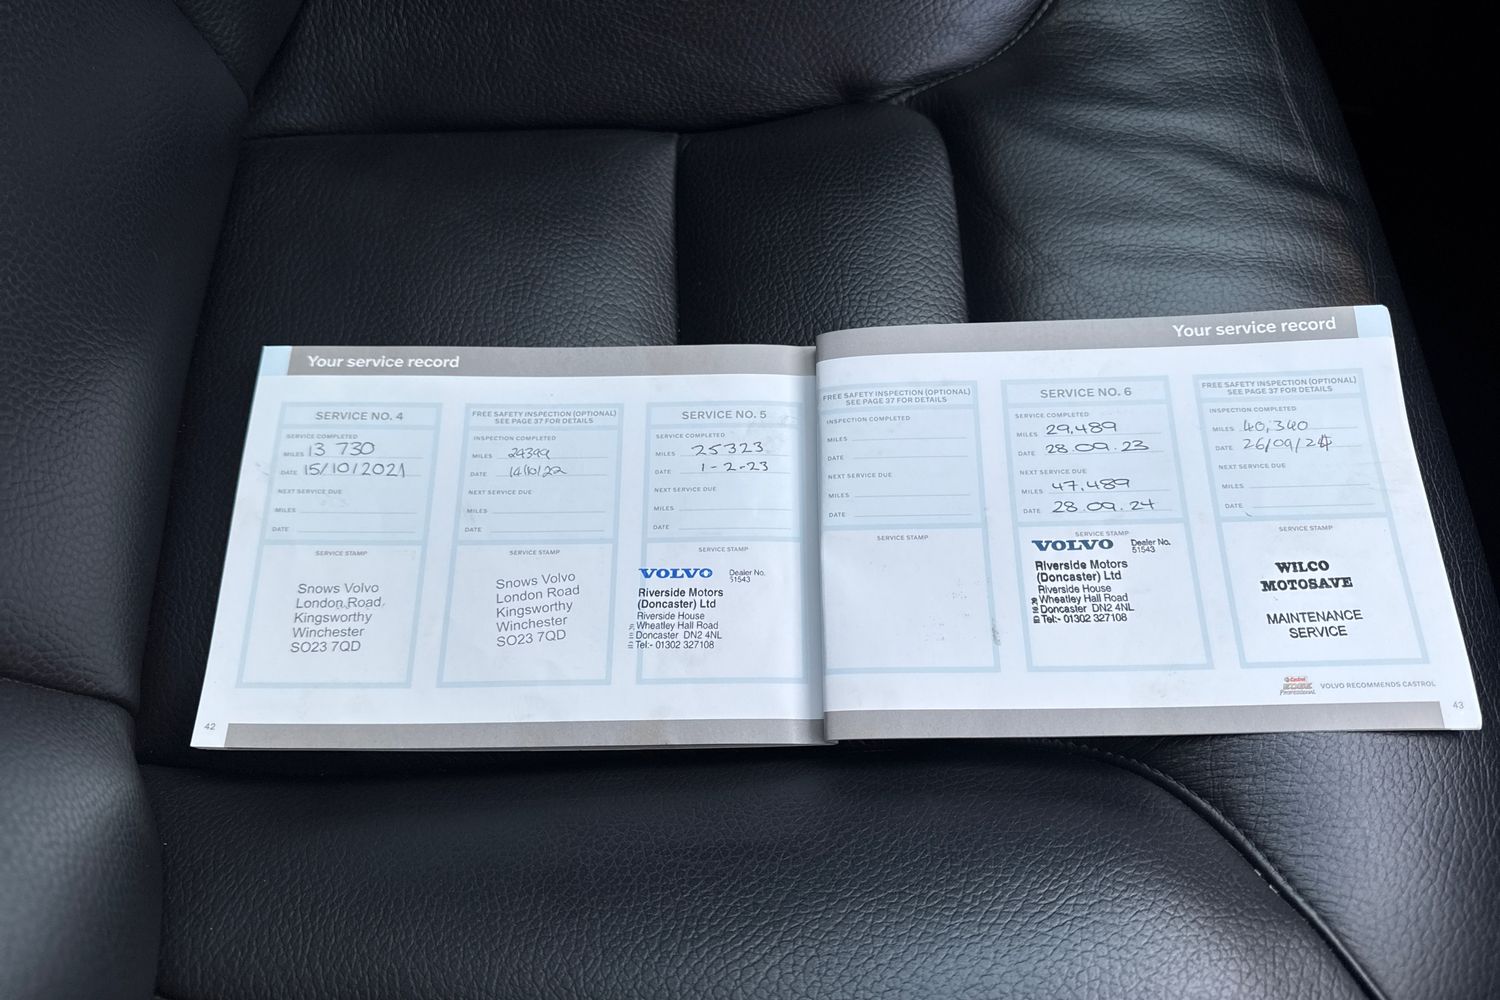 Your service record
SERVICE NO. 4
SERVICE COMPLETED
MILES 13 730
DATE 15/10/2021
NEXT SERVICE DUE
MILES
DATE
SERVICE STAMP
Snows Volvo
London Road
Kingsworthy
Winchester
SO23 7QD
FREE SAFETY INSPECTION (OPTIONAL)
SEE PAGE 37 FOR DETAILS
INSPECTION COMPLETED
MILES 24399
DATE 14/10/22
NEXT SERVICE DUE
MILES
DATE
SERVICE STAMP
Snows Volvo
London Road
Kingsworthy
Winchester
SO23 7QD
SERVICE NO. 5
SERVICE COMPLETED
MILES 25323
DATE 1-2-23
NEXT SERVICE DUE
MILES
DATE
SERVICE STAMP
VOLVO Dealer No.
51543
Riverside Motors
(Doncaster) Ltd
Riverside House
Wheatley Hall Road
Doncaster DN2 4NL
Tel:- 01302 327108
42
Your service record
FREE SAFETY INSPECTION (OPTIONAL)
SEE PAGE 37 FOR DETAILS
INSPECTION COMPLETED
MILES
DATE
NEXT SERVICE DUE
MILES
DATE
SERVICE STAMP
SERVICE NO. 6
SERVICE COMPLETED
MILES 29,489
DATE 28.09.23
NEXT SERVICE DUE
MILES 47,489
DATE 28.09.24
SERVICE STAMP
VOLVO Dealer No.
51543
Riverside Motors
(Doncaster) Ltd
Riverside House
Wheatley Hall Road
Doncaster DN2 4NL
Tel:- 01302 327108
FREE SAFETY INSPECTION (OPTIONAL)
SEE PAGE 37 FOR DETAILS
INSPECTION COMPLETED
MILES 40,340
DATE 26/09/24
NEXT SERVICE DUE
MILES
DATE
SERVICE STAMP
WILCO
MOTOSAVE
MAINTENANCE
SERVICE
Castrol
EDGE
Professional
VOLVO RECOMMENDS CASTROL
43